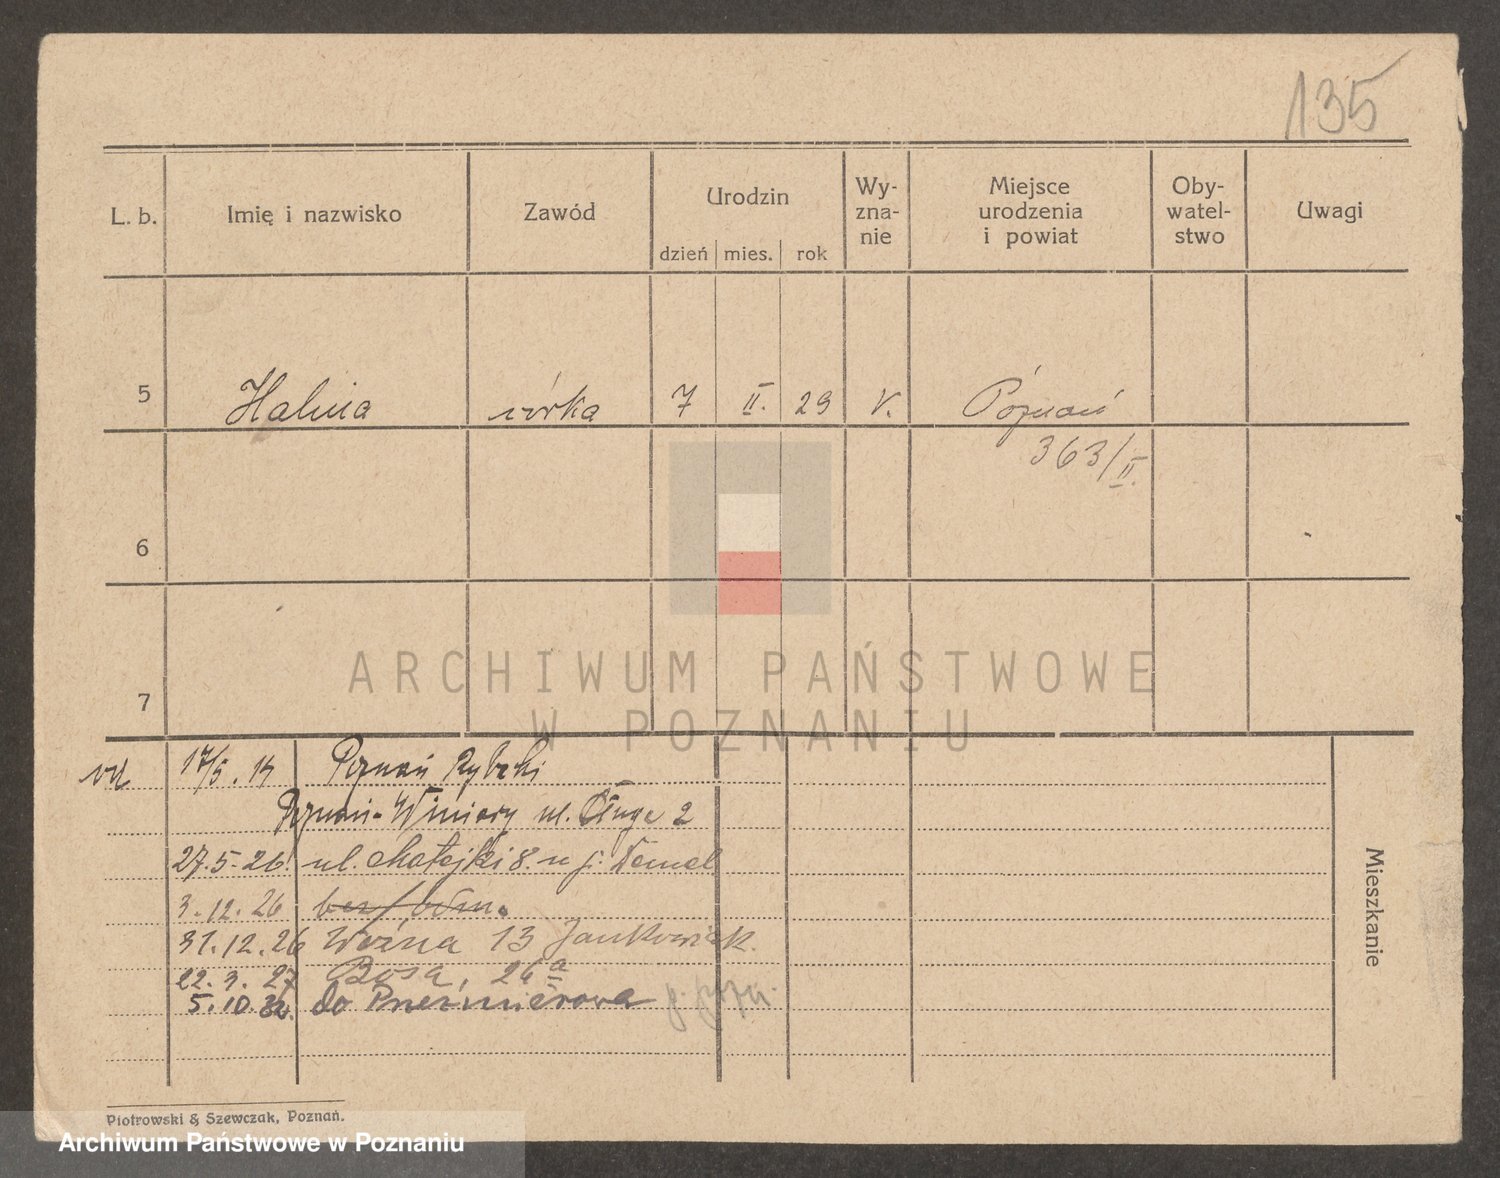 135
L. b. Imię i nazwisko Zawód Urodzin Wy- Miejsce Oby- Uwagi
zna- urodzenia watel-
nie i powiat stwo
dzień mies. rok
5 Halina córka 7 II. 29 Poznań
363/II.
6
7
ARCHIWUM PAŃSTWOWE
W POZNANIU
17/5. Poznań
Poznań-Winiary ul. Długa 2
27.5.26. ul. Matejki 8.
3.12.26
31.12.26 Woźna 13 Jankowiak.
22.3.27 Bosa, 26a
5.10.32. do Przeźmierowa
Mieszkanie
Piotrowski & Szewczak, Poznań.
Archiwum Państwowe w Poznaniu